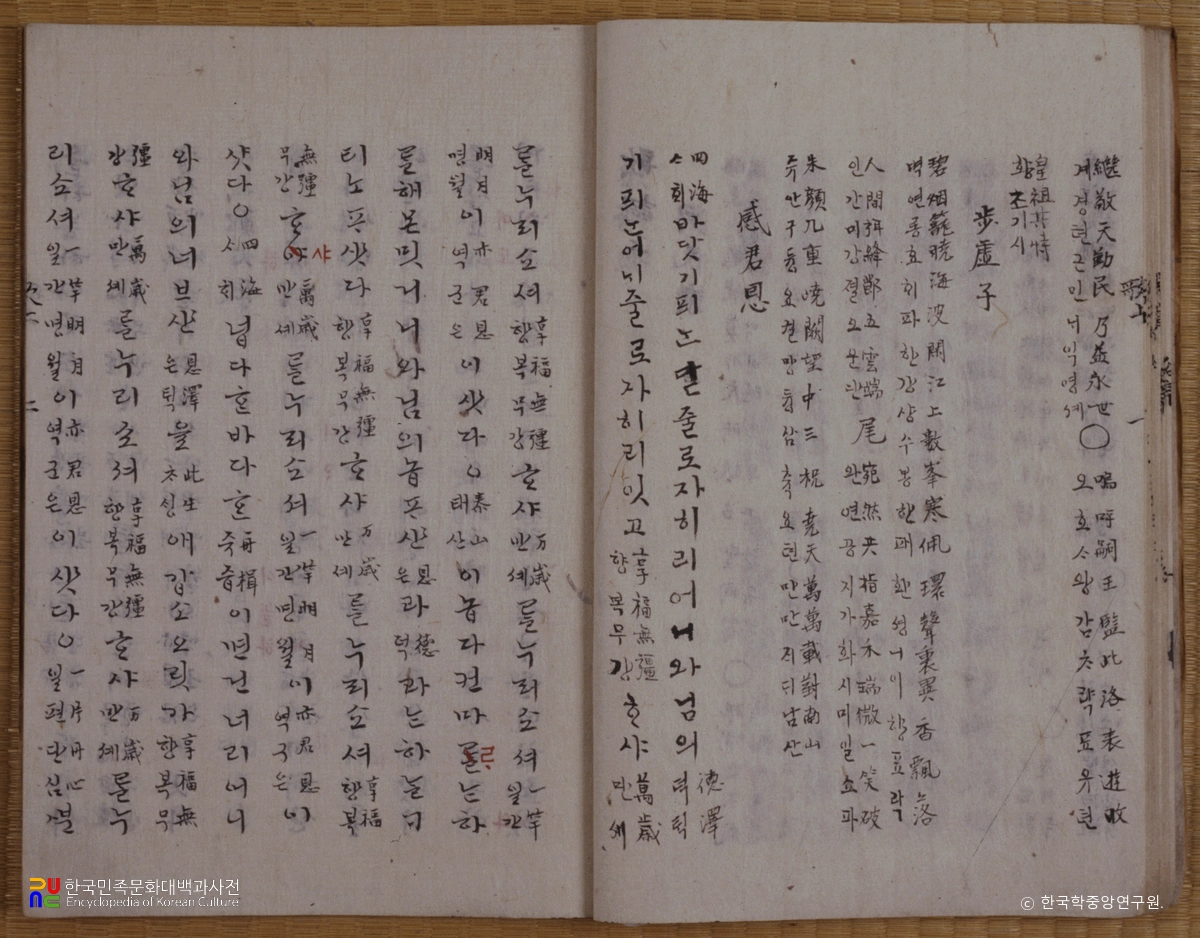 繼敬天勤民 乃益永世○ 嗚呼嗣王監此洛表遊畋
계경텬근민너익영셰 오호ᄉᆞ왕감ᄎᆞ락표유뎐
皇祖其恃
황조기시
步虛子
碧烟籠曉海波閑江上數峯寒佩環聲裏異香飄落
벽연롱효ᄒᆡ파한강샹수봉한패환셩니이향표락
人間弭絳節五雲端 尾 宛然共指嘉禾瑞微一笑破
인간미강졀오운단 완연공지가화시미일쇼파
朱顔九重曉闕望中三祝堯天萬萬載對南山
쥬안구듕효궐망듕삼축요텬만만ᄌᆡᄃᆡ남산
感君恩
四海ᄉᆞᄒᆡ바닷기픠ᄂᆞᆫ닫줄로자히리어니와님의德澤덕ᄐᆡᆨ
기픠ᄂᆞᆫ어ᄂᆡ줄로자히리잇고享福無疆향복무강ᄒᆞ샤萬歲만셰
ᄅᆞᆯ누리쇼셔享福無疆향복무강ᄒᆞ샤万歲만셰ᄅᆞᆯ누리쇼셔一竿일간
明月명월이亦君恩역군은이샷다○泰山태산이놉다컨마ᄅᆞᄂᆞᆫ하
ᄅᆞᆯ해몬밋거니와님의놉프샨恩은과德덕과ᄂᆞᆫ하ᄂᆞᆯᄀᆞ
티노프샷다享福無疆향복무강ᄒᆞ샤万歲만셰ᄅᆞᆯ누리쇼셔享福향복
無疆무강ᄒᆞ샤萬歲만셰ᄅᆞᆯ누리쇼셔一竿明月일간명월이亦君恩역군은이
샷다○四海ᄉᆞᄒᆡ넙다ᄒᆞᆫ바다ᄒᆞᆫ舟楫쥬즙이면건너리어니
와님의너브샨恩澤은ᄐᆡᆨ을此生ᄎᆞᄉᆡᆼ애갑소오릿가享福無향복무
疆강ᄒᆞ샤萬歲만셰ᄅᆞᆯ누리쇼셔享福無疆향복무강ᄒᆞ샤万歲만셰ᄅᆞᆯ누
리쇼셔一竿明月일간명월이亦君恩역군은이샷다○一片丹心일편단심ᄲᅮᆫ
한국민족문화대백과사전
Encyclopedia of Korean Culture
© 한국학중앙연구원.